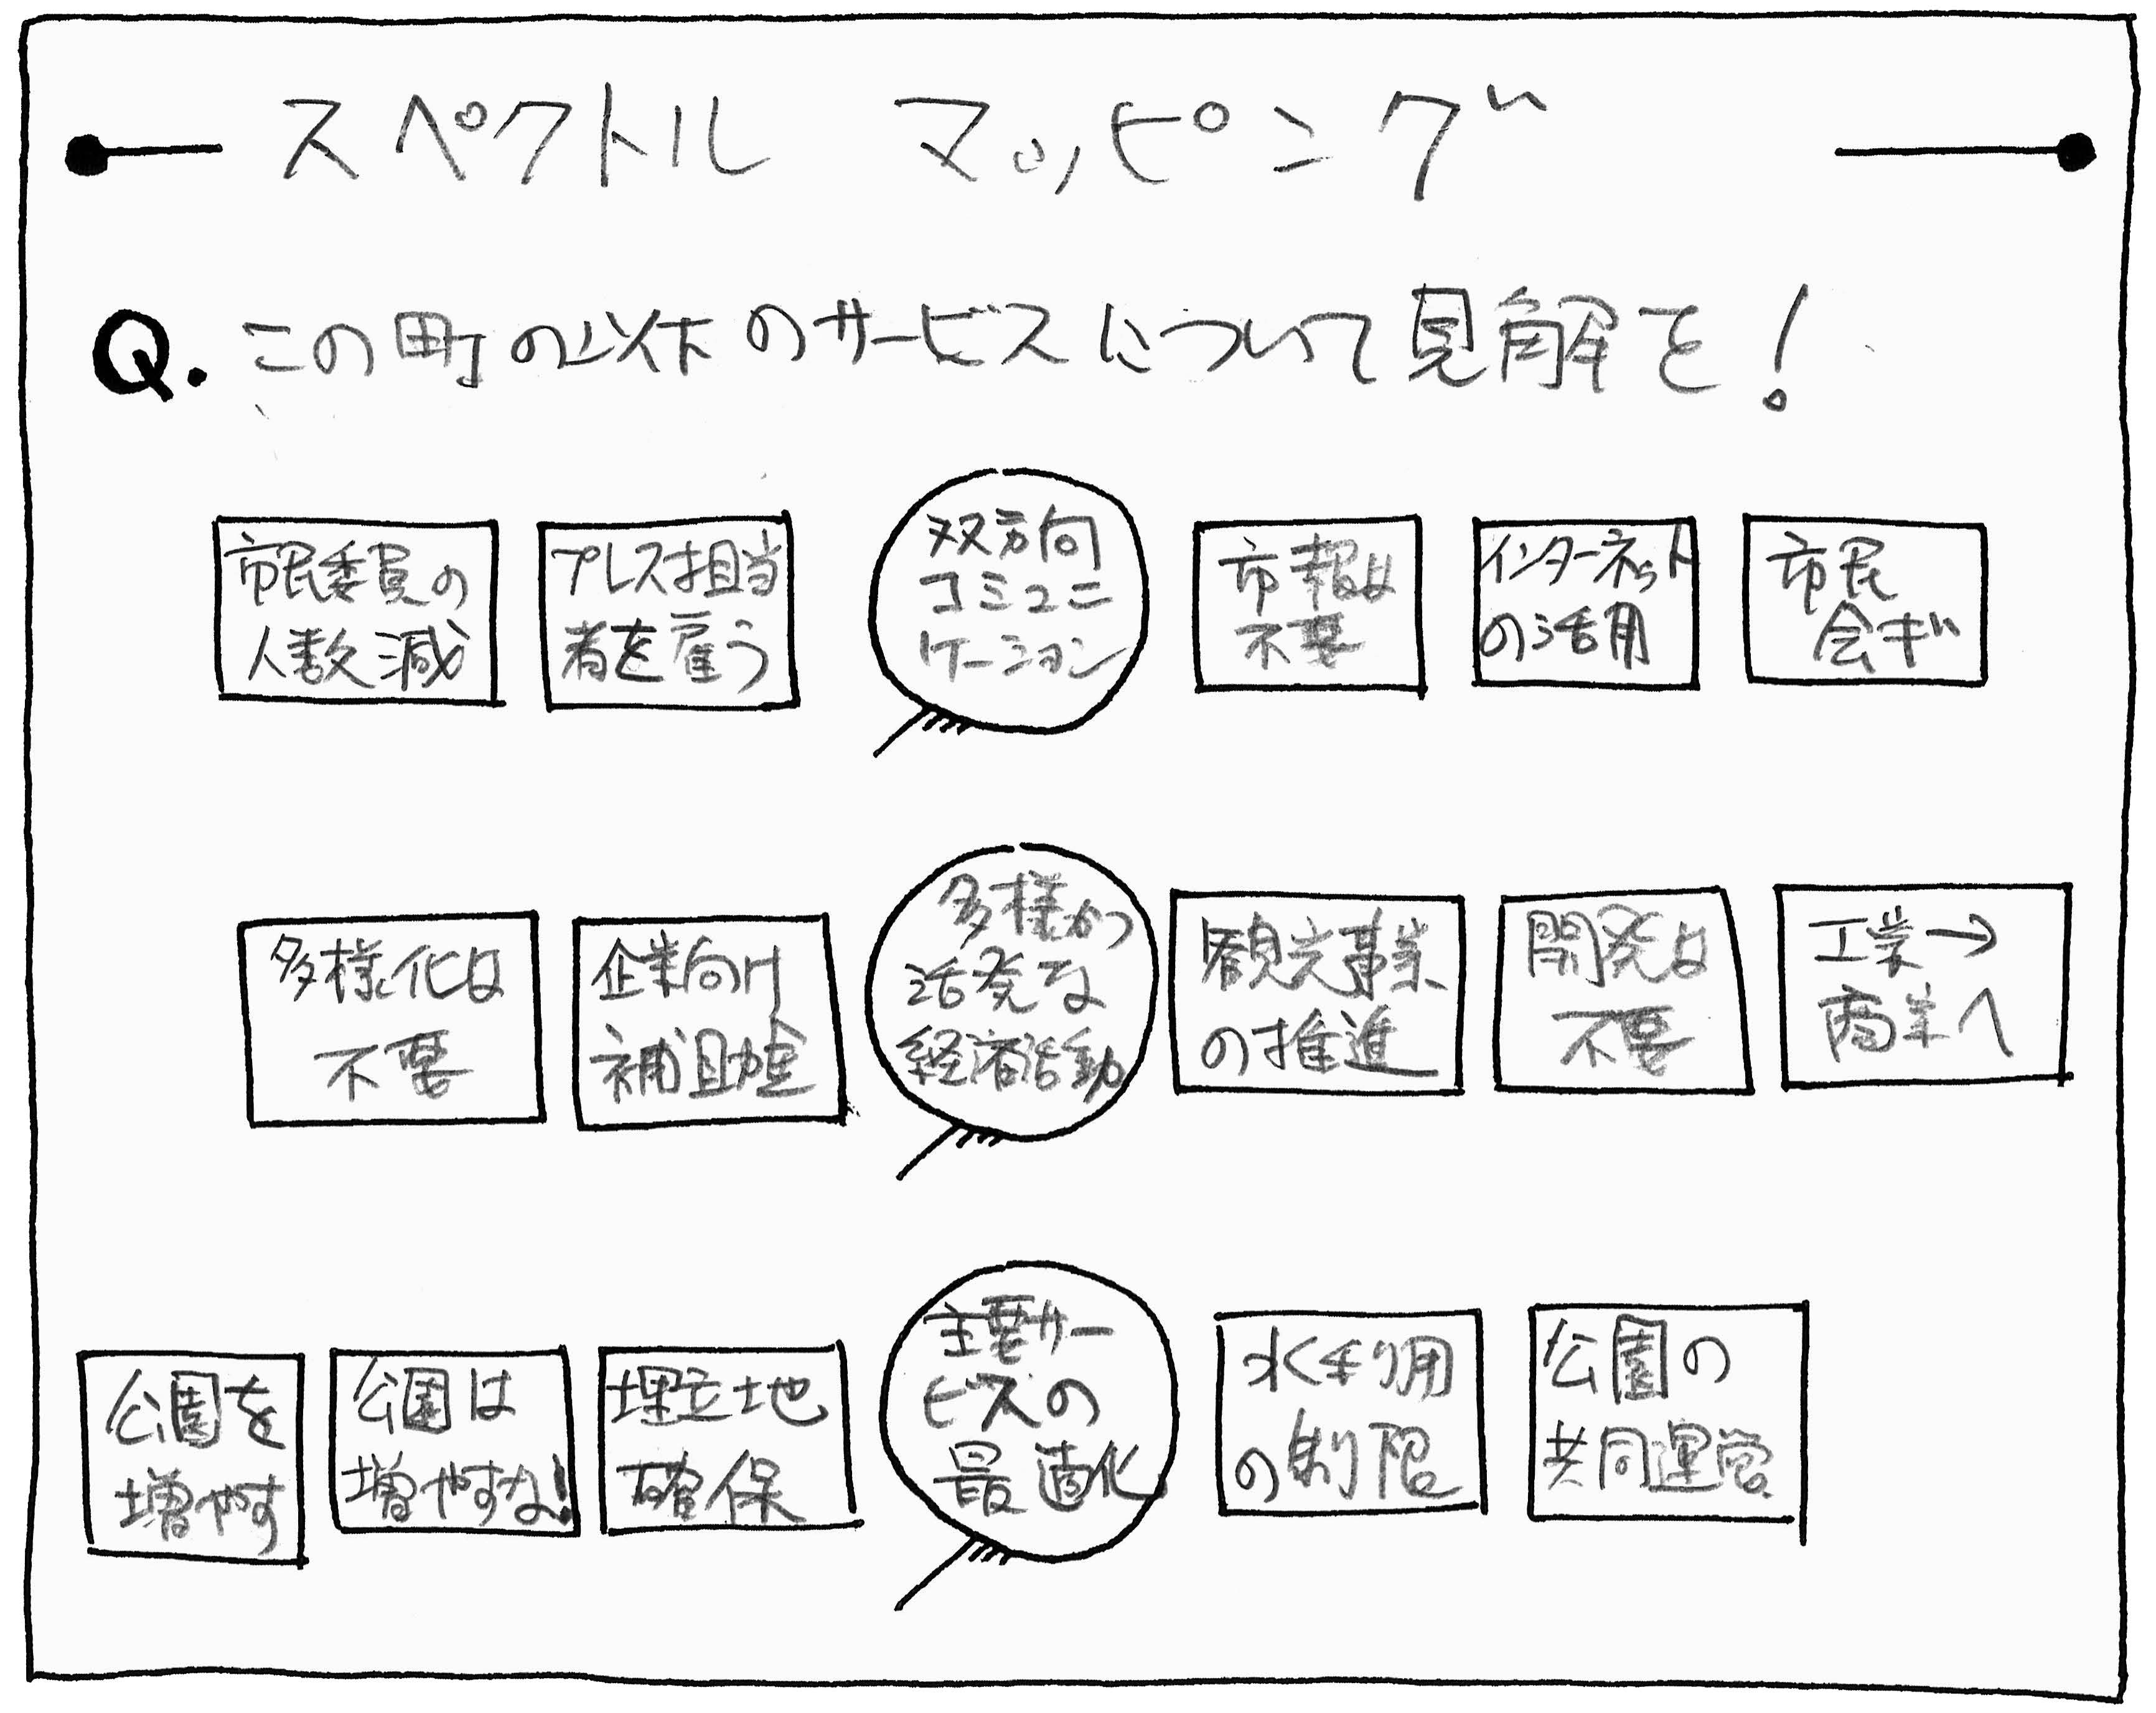 スペクトル マッピング
Q. この町の以下のサービスについて見解を!
市民委員の
人数減
プレス担当
者を雇う
双方向
コミュニ
ケーション
市報は
不要
インターネット
の活用
市民
会ギ
多様化は
不要
企業向け
補助金
多様かつ
活発な
経済活動
観光事業
の推進
開発は
不要
工業→
商業へ
公園を
増やす
公園は
増やすな!
埋立地
確保
主要サー
ビスの
最適化
水利用
の制限
公園の
共同運営